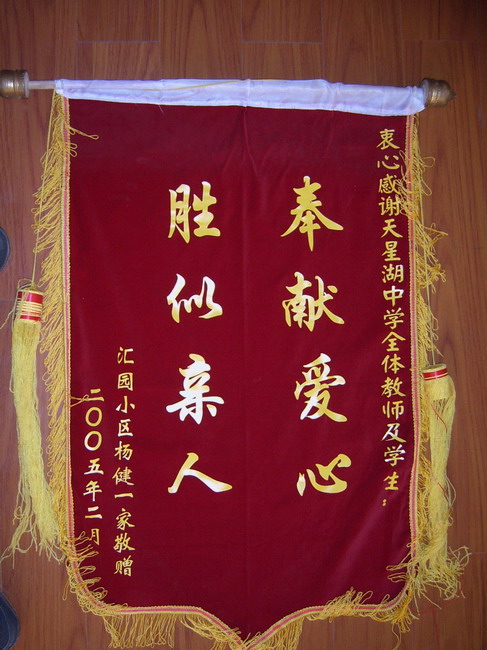 衷心感谢天星湖中学全体教师及学生：
奉献爱心
胜似亲人
汇园小区杨健一家敬赠
二〇〇五年二月